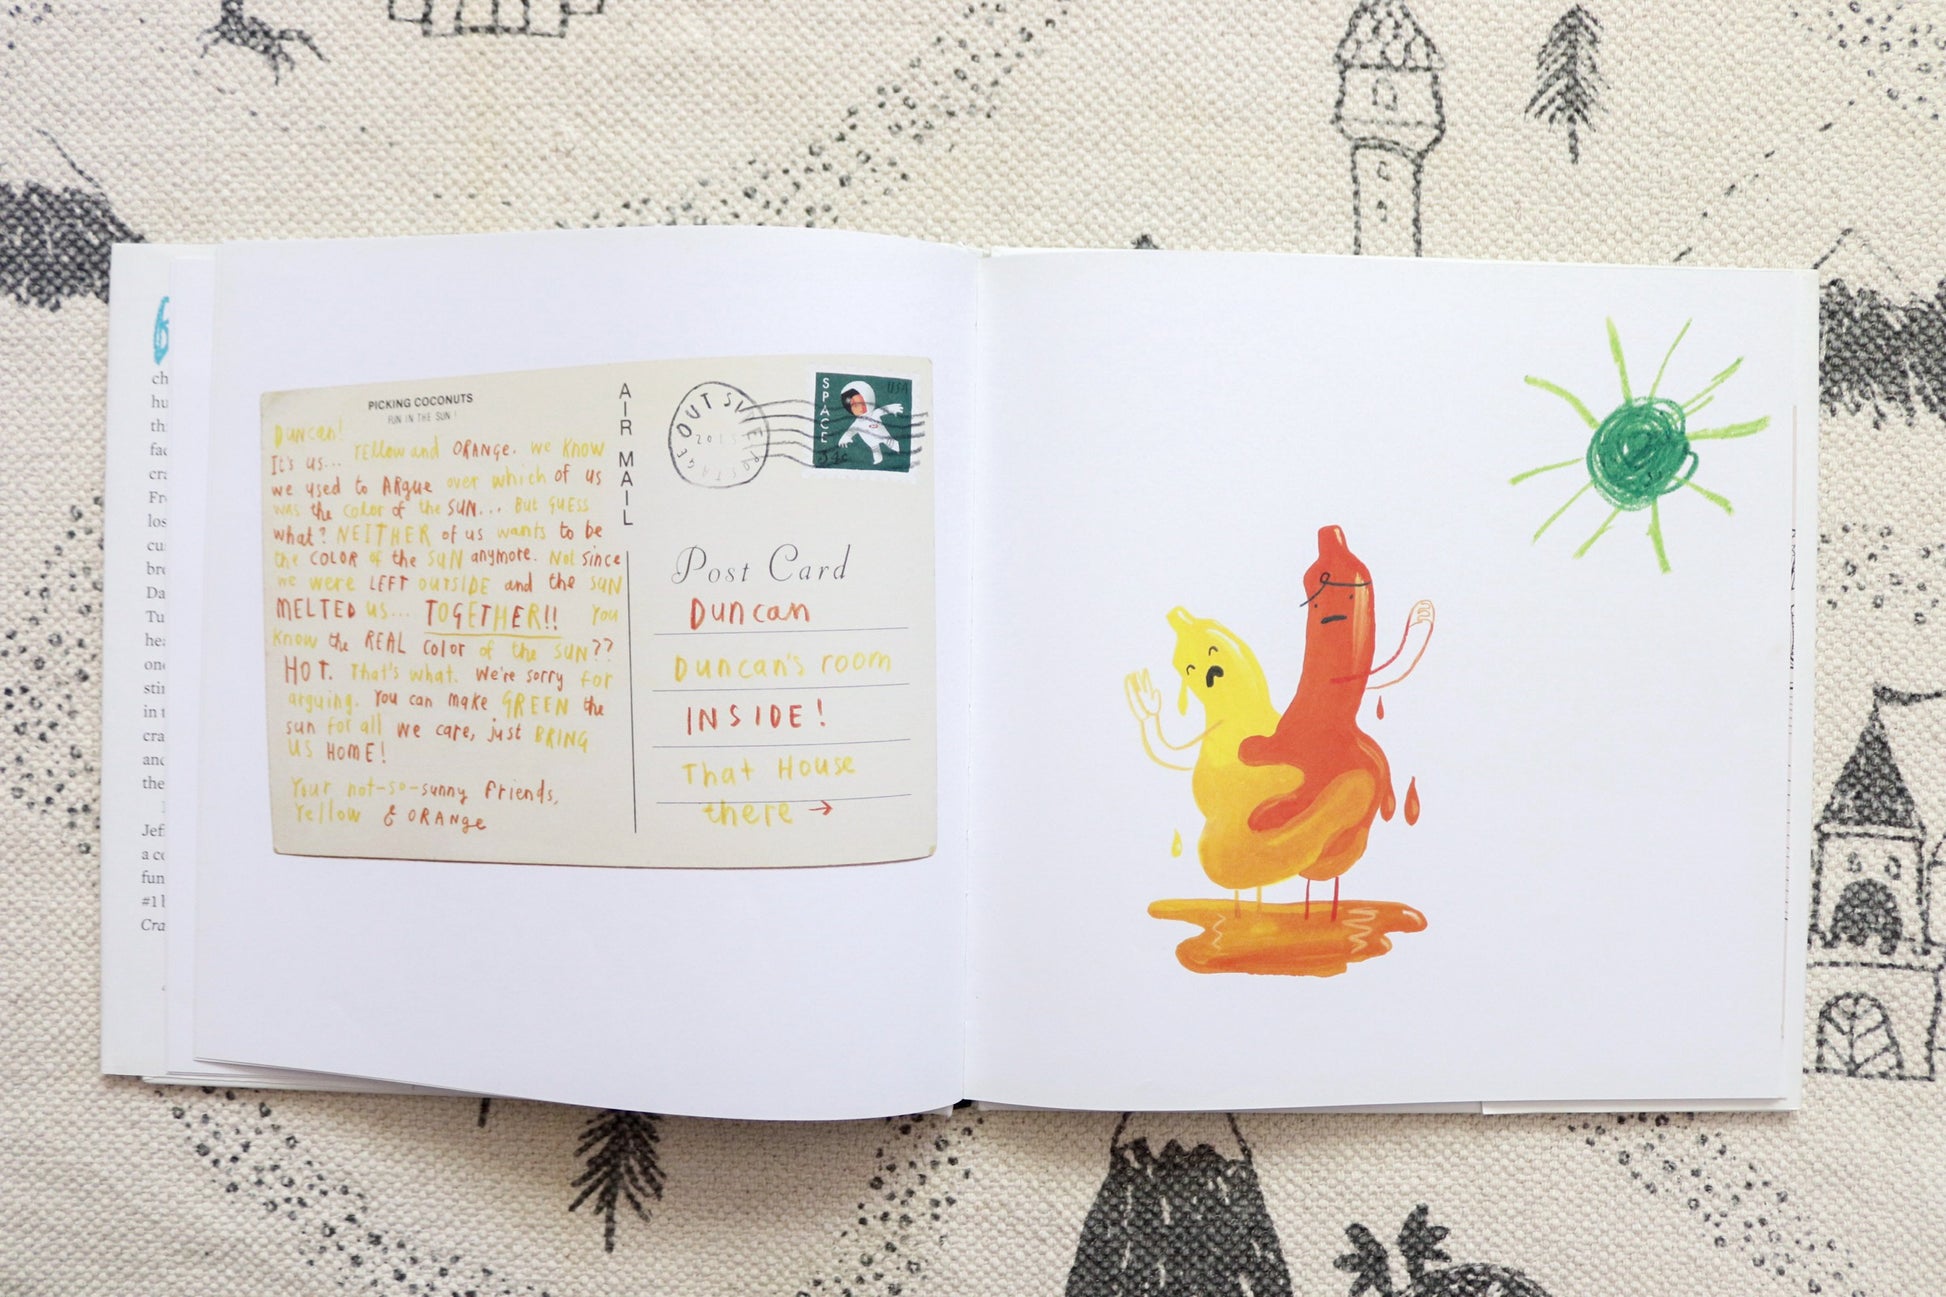 ch
hu
th
fac
cra
Fr
los
cu
bre
Da
Tu
hea
one
stin
in t
cra
and
the
Jef
a co
fun
#1 b
Cra
PICKING COCONUTS
FUN IN THE SUN!
Duncan!
It's us... Yellow and ORANGE. we know
we used to ARgue over which of us
was the color of the SUN... But GUESS
what? NEITHER of us wants to be
the COLOR of the SUN anymore. Not since
we were LEFT OUTSIDE and the SUN
MELTED us... TOGETHER!! You
know the REAL color of the SUN??
HOT. That's what. We're sorry for
arguing. You can make GREEN the
sun for all we care, just BRING
US HOME!
Your not-so-sunny friends,
Yellow & ORANge
AIR MAIL
OUTSIDE POSTAGE
2015
SPACE
USA
54c
Post Card
Duncan
Duncan's room
INSIDE!
That House
there →